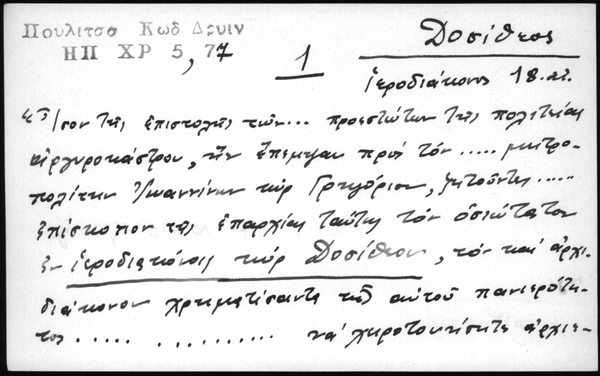 Πουλιτσα Κωδ Δρυιν
ΗΠ ΧΡ 5, 77
1
Δοσίθεος
ἱεροδιάκονος 18. αἰ.
«Ἴσον τῆς ἐπιστολῆς τῶν... προεστώτων τῆς πολιτείας
Ἀργυροκάστρου, ἣν ἔπεμψαν πρὸς τὸν ..... μητρο-
πολίτην Ἰωαννίνων κὺρ Γρηγόριον, ζητοῦντες .....
ἐπίσκοπον τῆς ἐπαρχίας ταύτης τὸν ὁσιώτατον
ἐν ἱεροδιακόνοις κὺρ Δοσίθεον, τὸν καὶ ἀρχι-
διάκονον χρηματίσαντα τῆς αὐτοῦ πανιερότη-
τος ..... .......... νὰ χειροτονήσητε ἀρχιε-